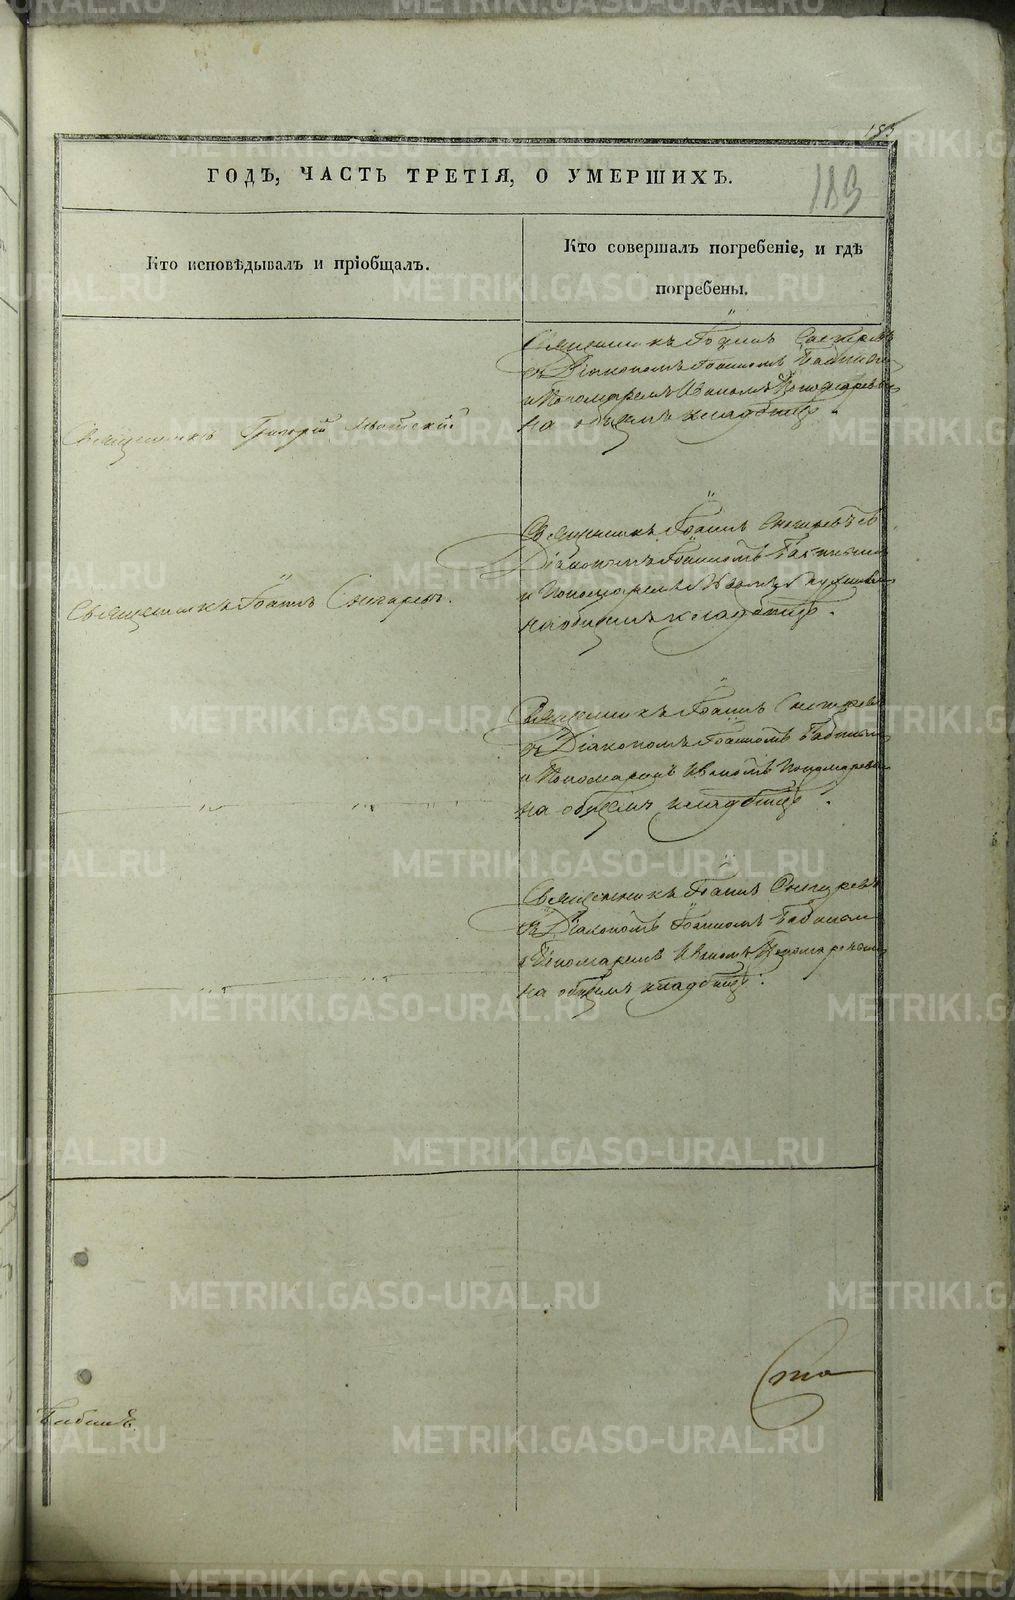 185
183
ГОДЪ, ЧАСТЬ ТРЕТІЯ, О УМЕРШИХЪ.
Кто исповѣдывалъ и пріобщалъ.
Кто совершалъ погребеніе, и гдѣ
погребены.
Священникъ Іоаннъ
съ Діакономъ Іоанномъ Бабинымъ
и Пономаремъ Иваномъ Пономаревымъ
на общемъ кладбищѣ.
Священникъ Григорій
Священникъ Іоаннъ Снигиревъ съ
Діакономъ Іоанномъ Бабинымъ
и Пономаремъ
на общемъ кладбищѣ.
Священникъ Іоаннъ Снигиревъ.
Священникъ Іоаннъ Снигиревъ
съ Діакономъ Іоанномъ Бабинымъ
и Пономаремъ Иваномъ Пономаревымъ
на общемъ кладбищѣ.
Священникъ Іоаннъ Снигиревъ
съ Діакономъ Іоанномъ Бабинымъ
и Пономаремъ Иваномъ Пономаревымъ
на общемъ кладбищѣ.
Сто
Бабинъ.
METRIKI.GASO-URAL.RU